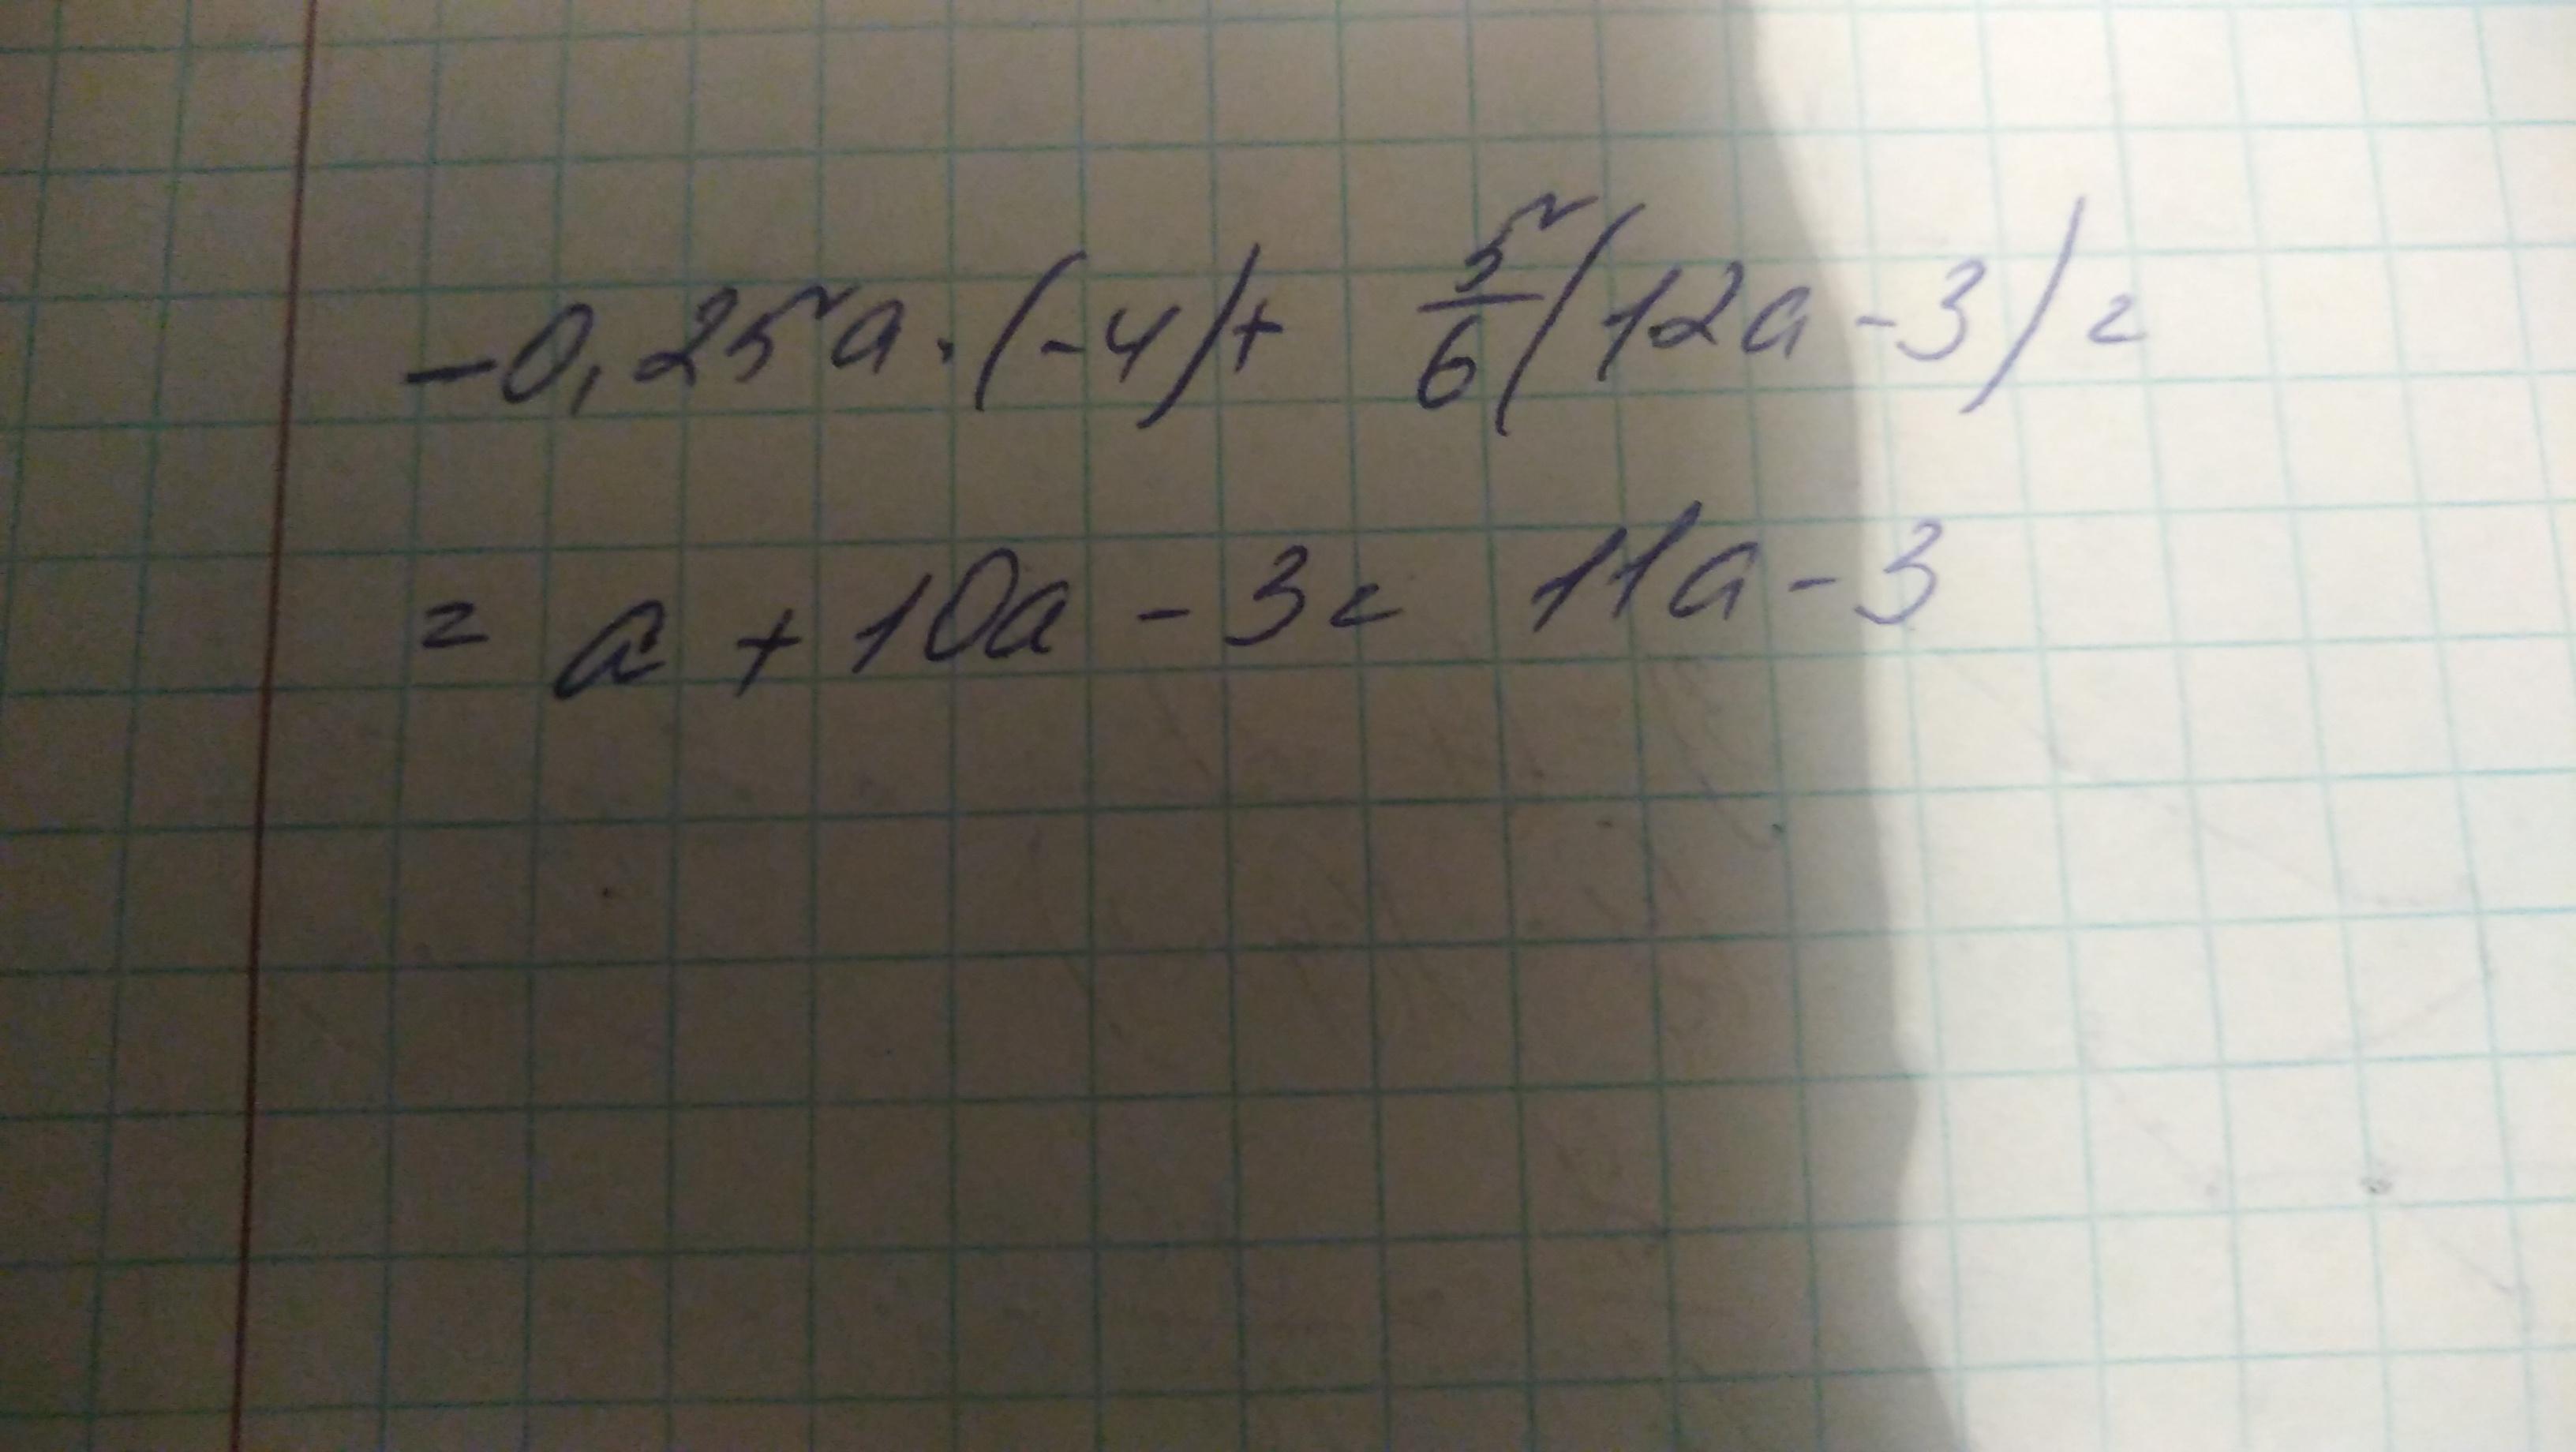 -0,25a·(-4)+ 5/6(12a-3)=
= a + 10a - 3 = 11a - 3